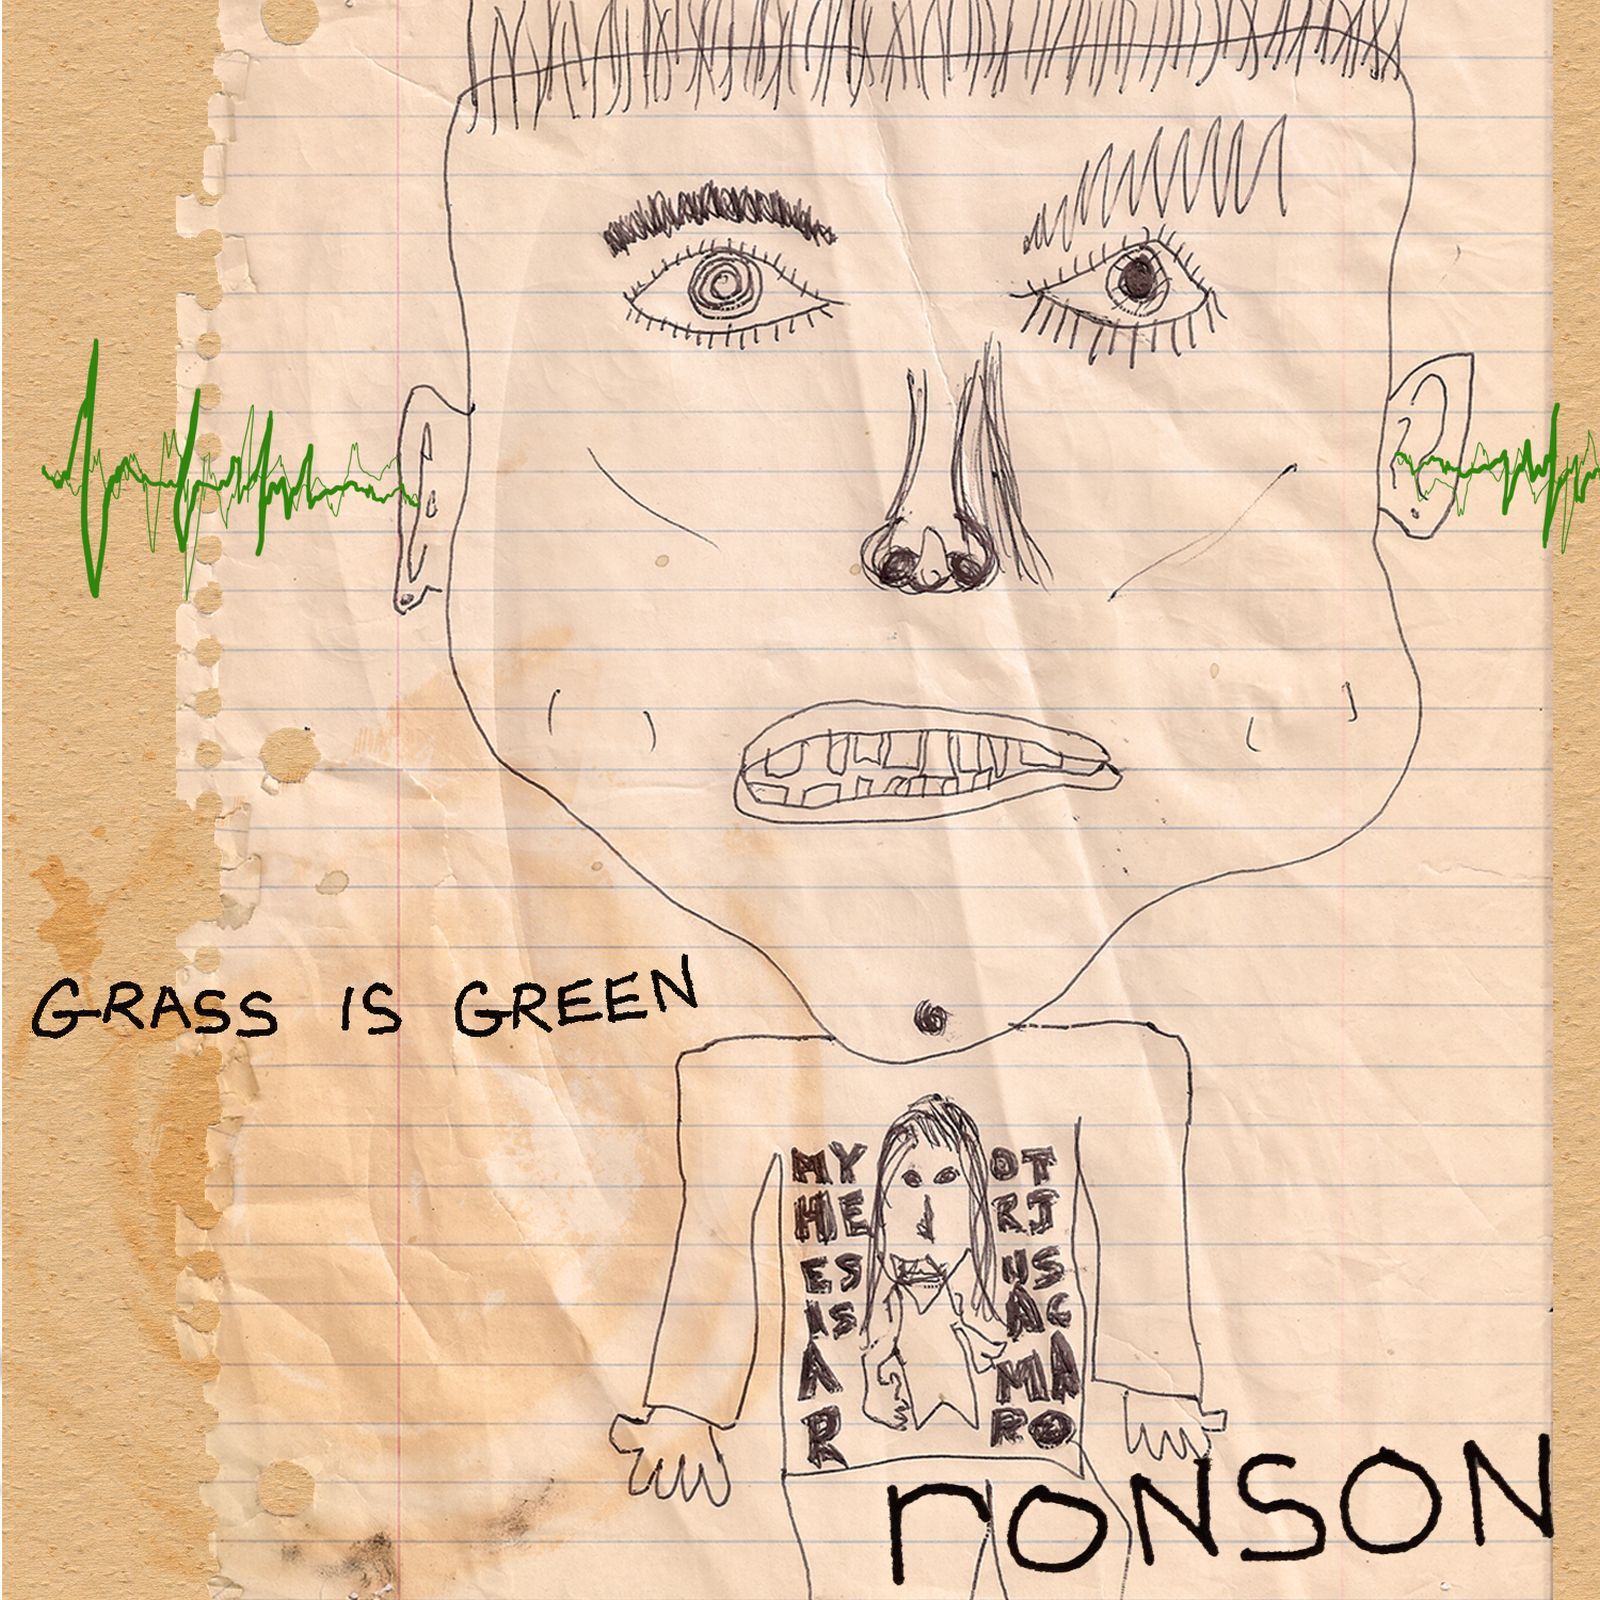 GRASS IS GREEN
MY
HE
ES
IS
A
R
OT
RJ
US
AC
MA
RO
rONSON